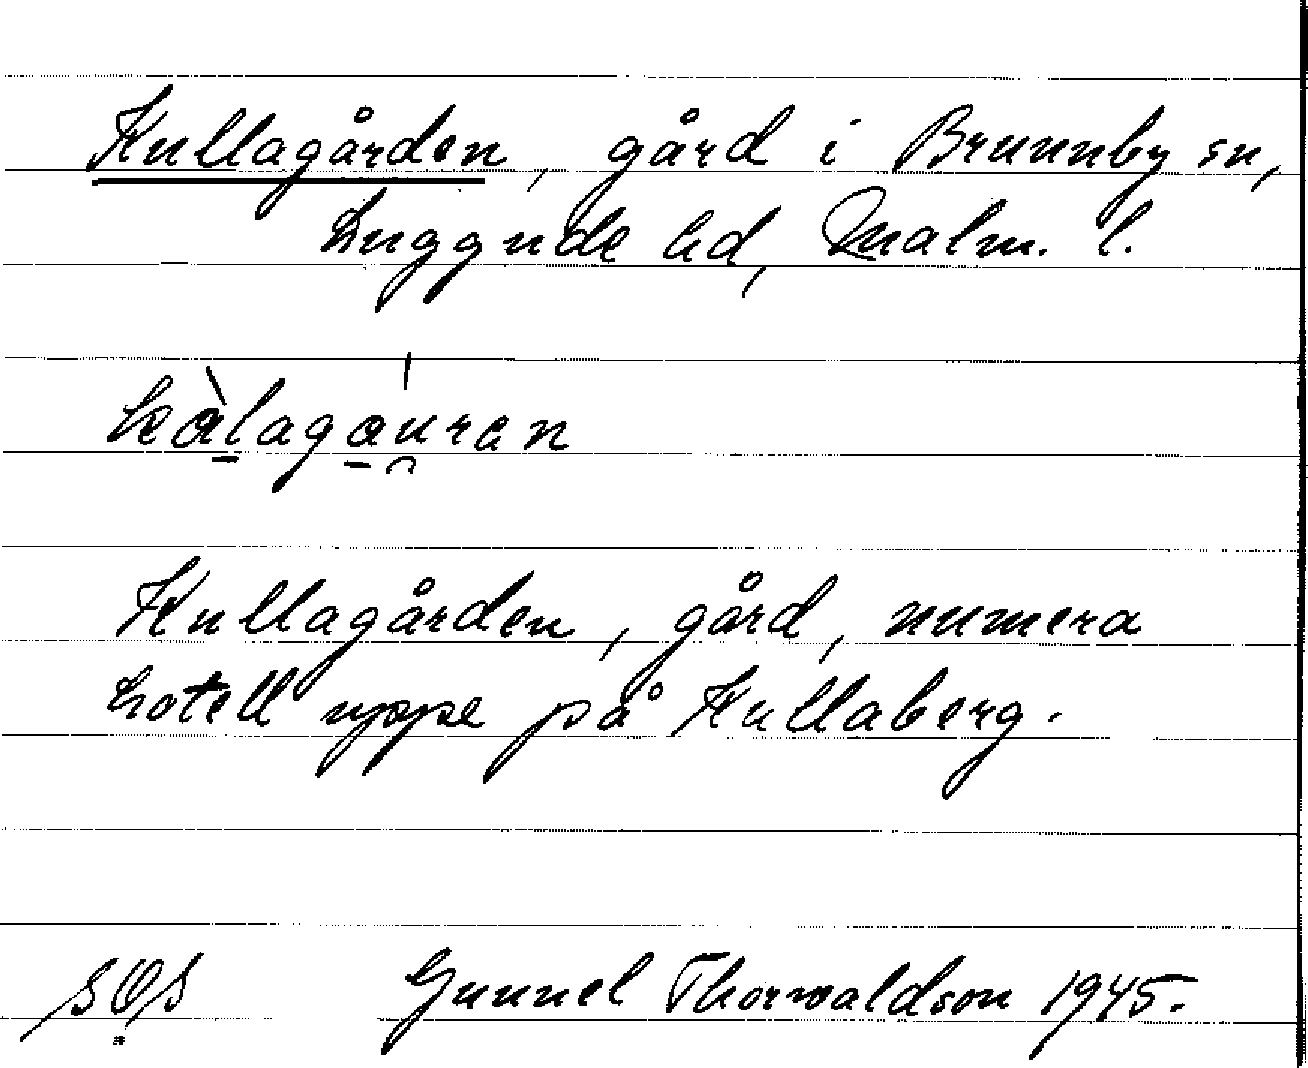 Kullagården, gård i Brunnby sn,
Luggude hd, Malm. l.
kàlagáuran
Kullagården, gård, numera
hotell uppe på Kullaberg.
Gunnel Thorwaldson 1945.